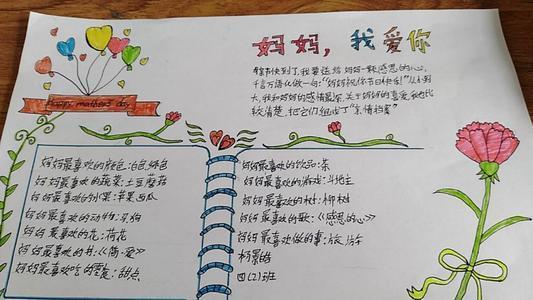 妈妈,我爱你
Happy mother's day
母亲节快到了,我要送给妈妈一颗感恩的心,
千言万语化做一句:“妈妈祝你节日快乐!”从小到
大,我和妈妈的感情最深,关于妈妈的喜爱,我也比
较清楚,把它们组成了“亲情档案”
妈妈最喜欢的颜色:白色绿色
妈妈最喜欢的蔬菜:土豆蘑菇
妈妈最喜欢的水果:苹果西瓜
妈妈最喜欢的动物:
妈妈最喜欢的花:荷花
妈妈最喜欢的书:《简·爱》
妈妈最喜欢吃的零食:甜点
妈妈最喜欢的饮品:茶
妈妈最喜欢的游戏:斗地主
妈妈最喜欢的树:柳树
妈妈最喜欢的歌:《感恩的心》
妈妈最喜欢做的事:旅游
四(2)班